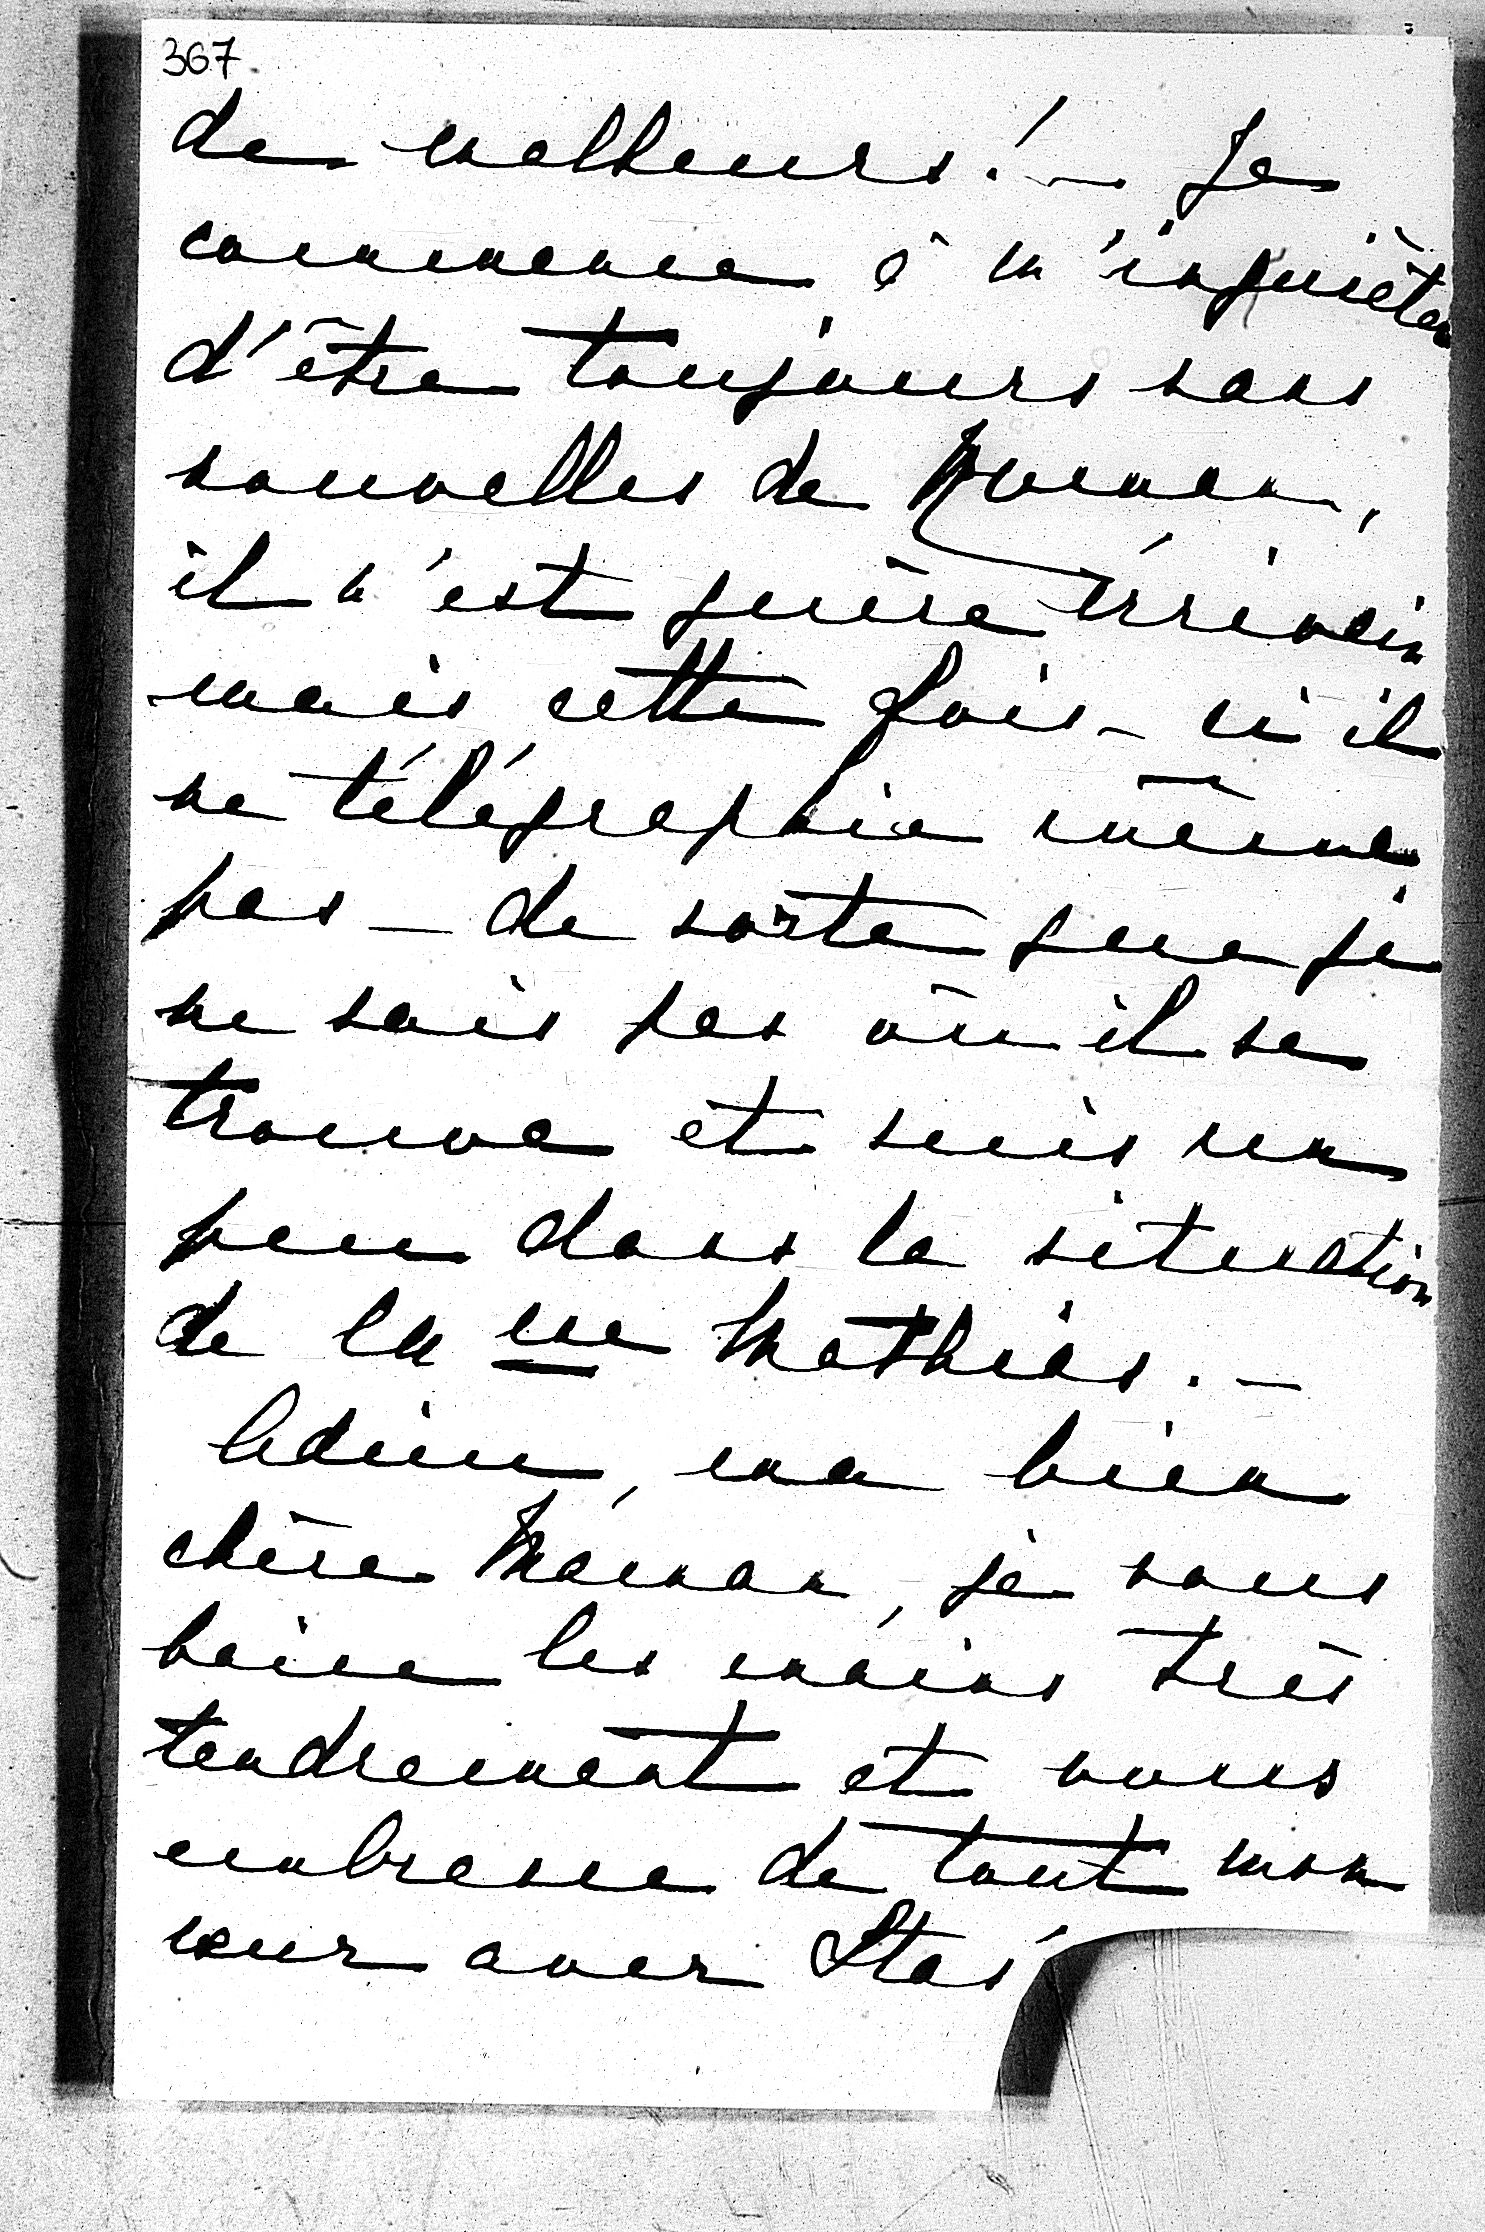 367.
de malheurs! — Je
commence à m'inquiéter
d'être toujours sans
nouvelles de Roman,
il n'est guère écrivain
mais cette fois – ci il
ne télégraphie même
pas – de sorte que je
ne sais pas où il se
trouve et suis un
peu dans la situation
de la me Mathias. –
Adieu, ma bien
chère Maman, je vous
baise les mains très
tendrement et vous
embrasse de tout mon
cœur avec Staś